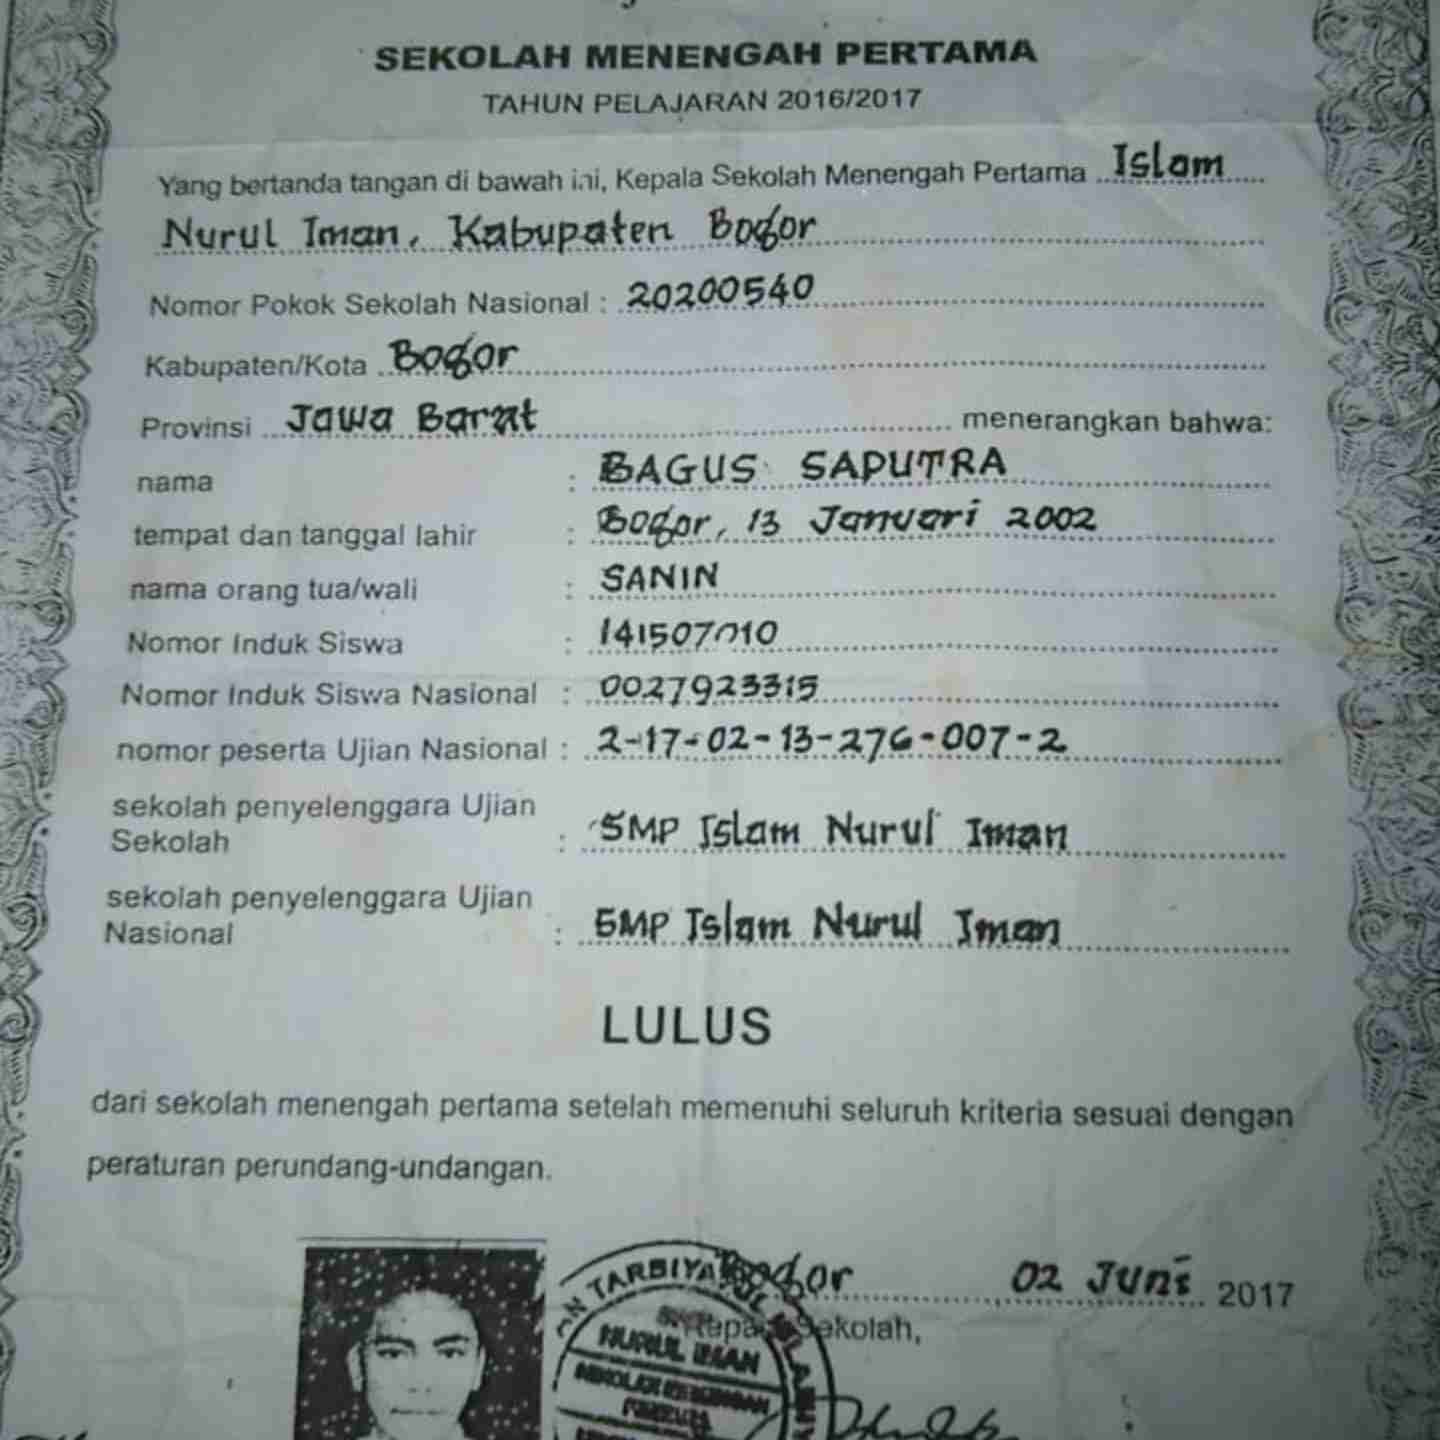 SEKOLAH MENENGAH PERTAMA
TAHUN PELAJARAN 2016/2017
Yang bertanda tangan di bawah ini, Kepala Sekolah Menengah Pertama Islam
Nurul Iman, Kabupaten Bogor
Nomor Pokok Sekolah Nasional : 20200540
Kabupaten/Kota Bogor
Provinsi Jawa Barat menerangkan bahwa:
nama : BAGUS SAPUTRA
tempat dan tanggal lahir : Bogor, 13 Januari 2002
nama orang tua/wali : SANIN
Nomor Induk Siswa : 141507010
Nomor Induk Siswa Nasional : 0027923315
nomor peserta Ujian Nasional : 2-17-02-13-276-007-2
sekolah penyelenggara Ujian
Sekolah : SMP Islam Nurul Iman
sekolah penyelenggara Ujian
Nasional : SMP Islam Nurul Iman
LULUS
dari sekolah menengah pertama setelah memenuhi seluruh kriteria sesuai dengan
peraturan perundang-undangan.
Bogor 02 Juni 2017
Kepala Sekolah,
NURUL IMAN